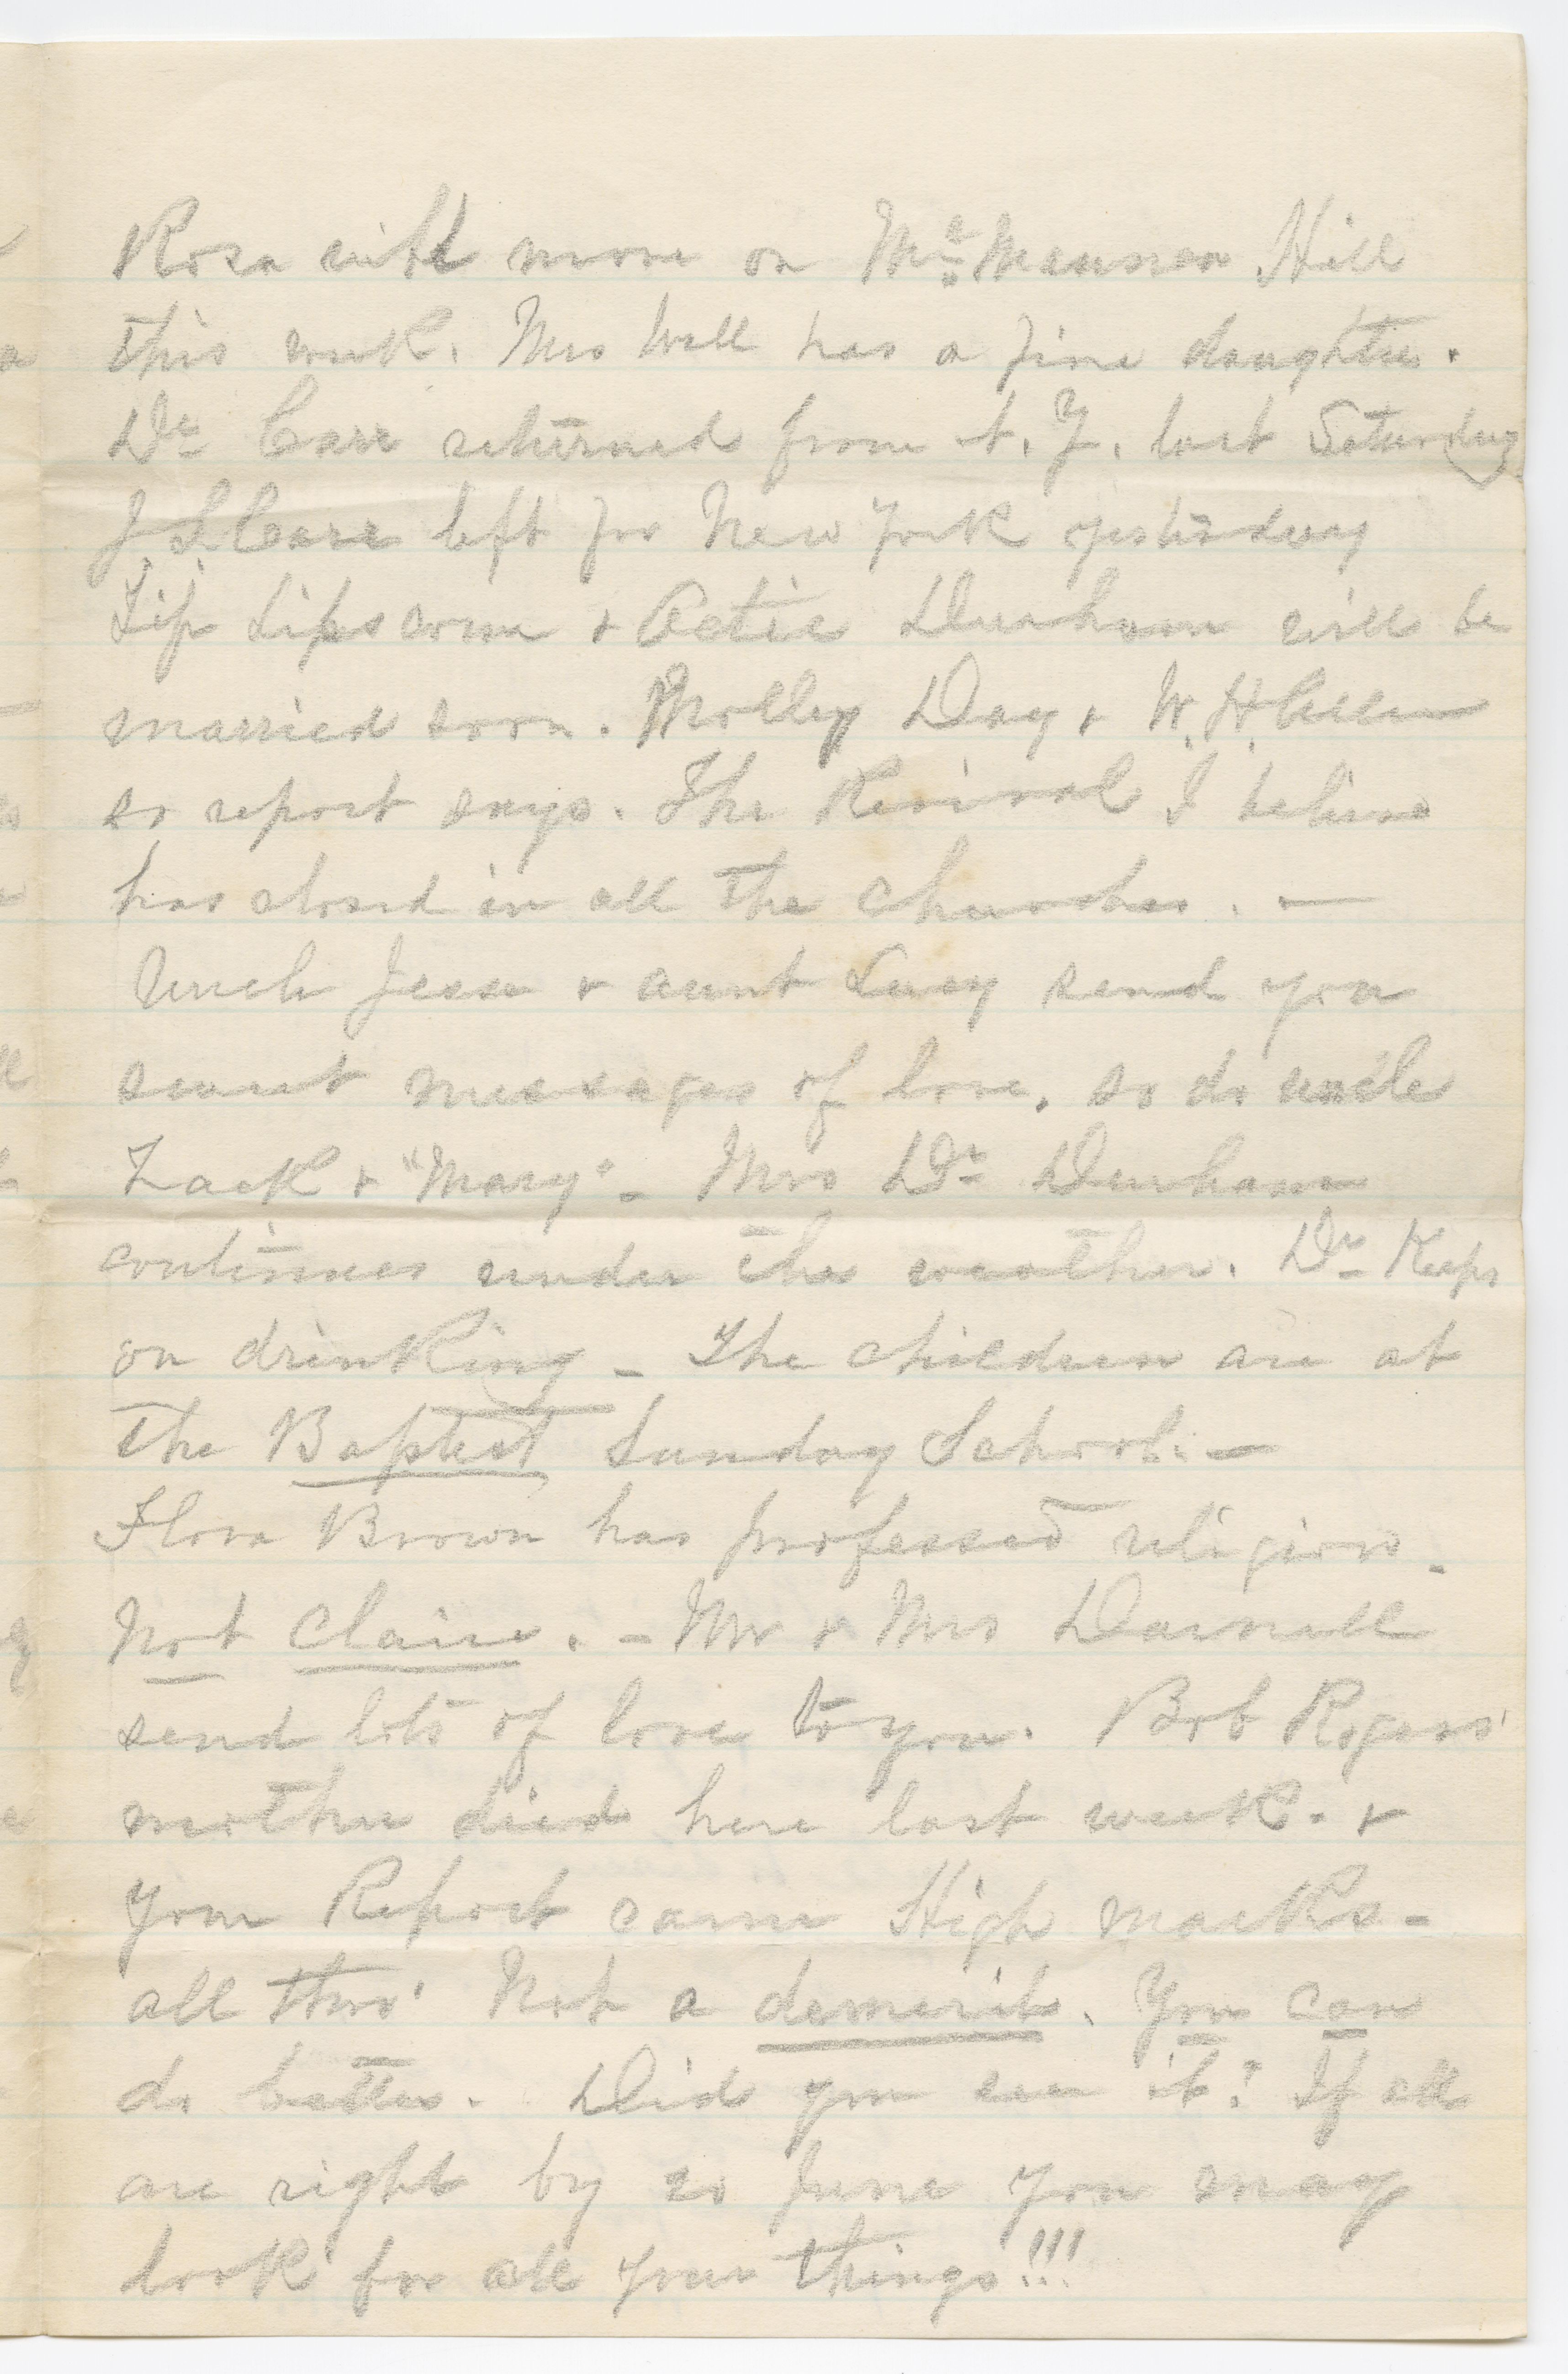 Rosa will move on Mr. Mannen Hill
this week. Mrs Wall has a fine daughter.
Dr Carr returned from N. Y. last Saturday
J. S. Carr left for New York yesterday
Tip Lipscom & Actie Durham will be
married soon. Molley Day & W. H. Allen
so report says. The Revival I believe
has closed in all the Churches. —
Uncle Jesse & aunt Lucy send you
sweet messages of love, so do uncle
Zack & "Mary" - Mrs Dr Durham
continues under the weather. Dr Keeps
on drinking - The children are at
the Baptist Sunday School. —
Flora Brown has professed religion -
Not Claim. - Mr & Mrs Darnall
send lots of love to you. Bob Rogers'
mother died here last week. &
Your Report came High marks -
all thro' Not a demerit. You can
do better. Did you see it? If all
are right by 20 June you may
look for all your things!!!